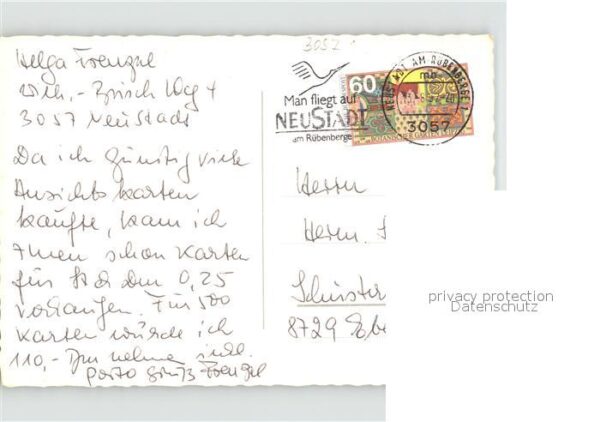 Helga Frenzel
Wilh.-Busch Weg 4
3057 Neustadt
Da ich günstig viele
Ansichtskarten
kaufte, kann ich
Ihnen schon Karten
für Stck DM 0,25
verlangen. Für 500
Karten würde ich
110,- DM nehmen inkl.
Porto Gruß Frenzel
3052
60
Man fliegt auf
NEUSTADT
am Rübenberge
NEUSTADT AM RÜBENBERGE 1
mo
3057
Herrn
Herm.
Schuster
8729 Ebe
privacy protection
Datenschutz